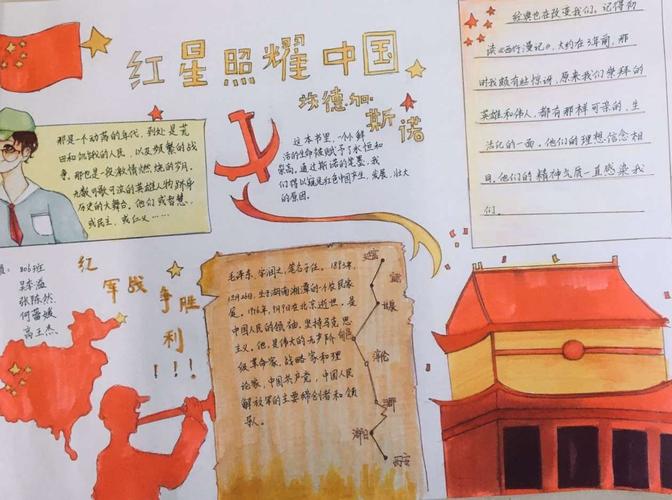 红星照耀中国
埃德加·斯诺
那是一个动荡的年代,到处是荒
田和饥饿的人民,以及频繁的战
争。那也是一段激情燃烧的岁月,
无数可歌可泣的英雄人物跻身
历史的大舞台。他们或智慧,
或民主,或仁义……
这本书里,一个个鲜
活的生命被赋予了永恒和
崇高。通过斯诺的笔墨,我
们得以窥见红色中国产生、发展、壮大
的原因。
经典也在改变我们。记得初
读《西行漫记》,大约在3年前,那
时我颇有些惊讶,原来我们崇拜的
英雄和伟人,都有那样可亲的,生
活化的一面。他们的理想、信念相
他们的精神气质一直感染我
们。
806班
张陈然
何蕾媛
高工杰
红军战争胜利!!!
毛泽东,字润之,笔名子任。1893年
12月26日,生于湖南湘潭的一个农民家
庭。1976年,9月9日在北京逝世。是
中国人民的领袖,坚持马克思
主义。他,是伟大的无产阶
级革命家、战略家和理
论家,中国共产党,中国人民
解放军的主要缔创者和领